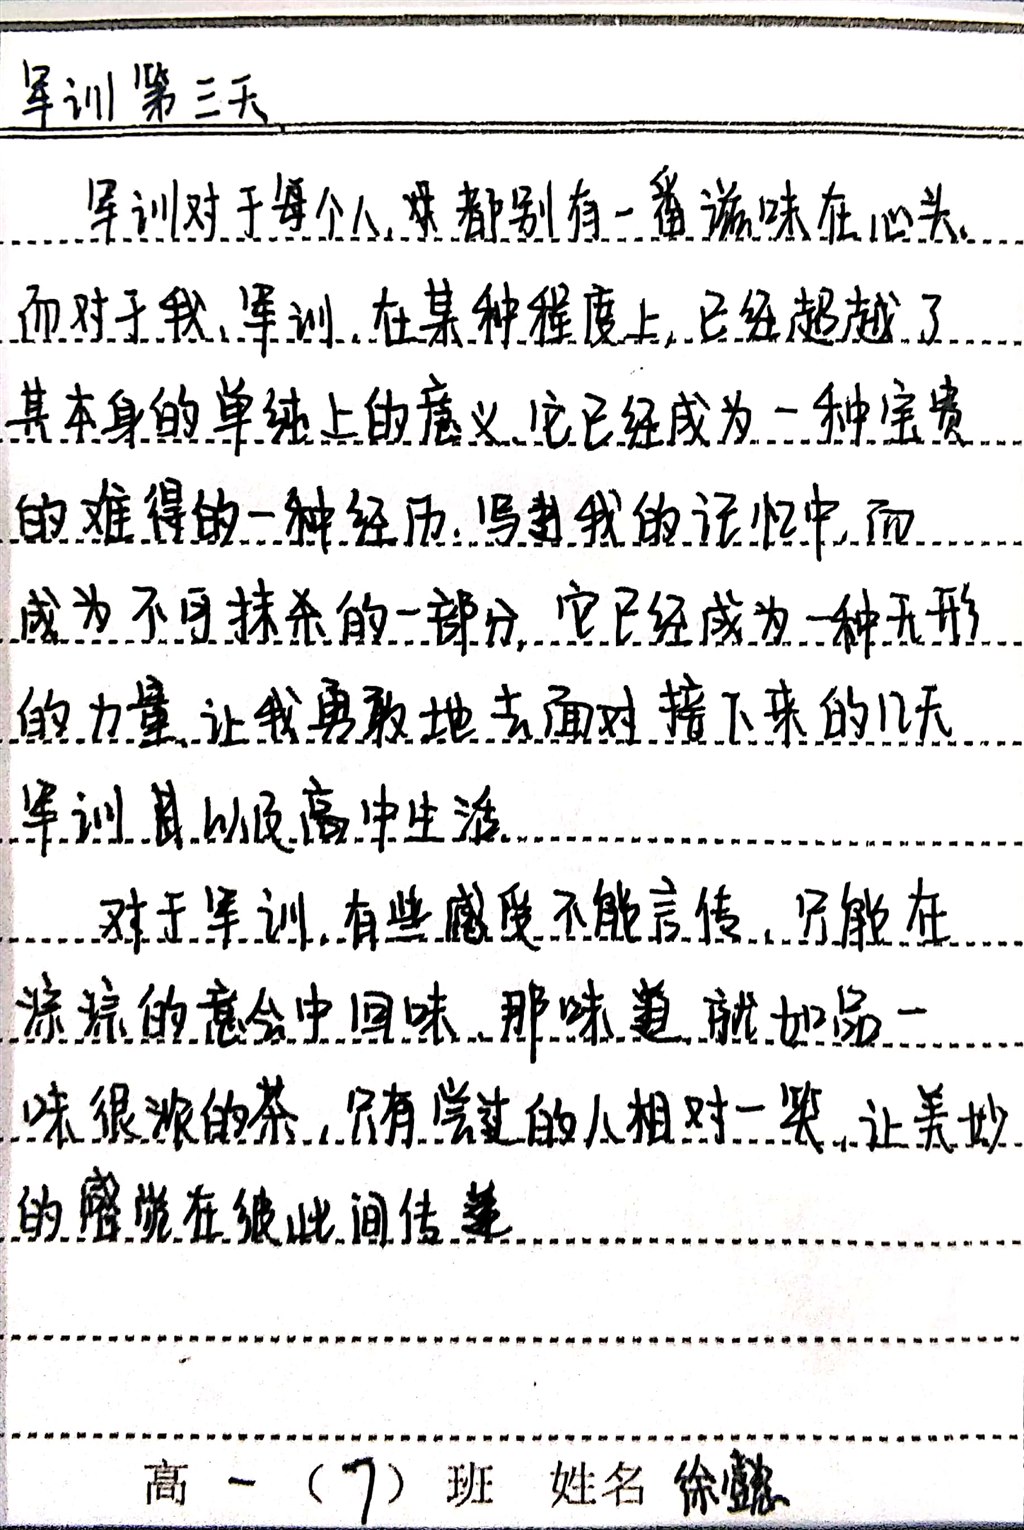 军训第三天
军训对于每个人,都别有一番滋味在心头,
而对于我,军训,在某种程度上,已经超越了
其本身的单纯上的意义,它已经成为一种宝贵
的难得的一种经历,写我的记忆中,而
成为不可抹杀的一部分,它已经成为一种无形
的力量,让我勇敢地去面对接下来的几天
军训以及高中生活.
对于军训,有些感受不能言传,只能在
深深的意会中回味,那味道就如品一
味很浓的茶,只有尝过的人相对一笑,让美妙
的感觉在彼此间传递
高一(7)班 姓名 徐